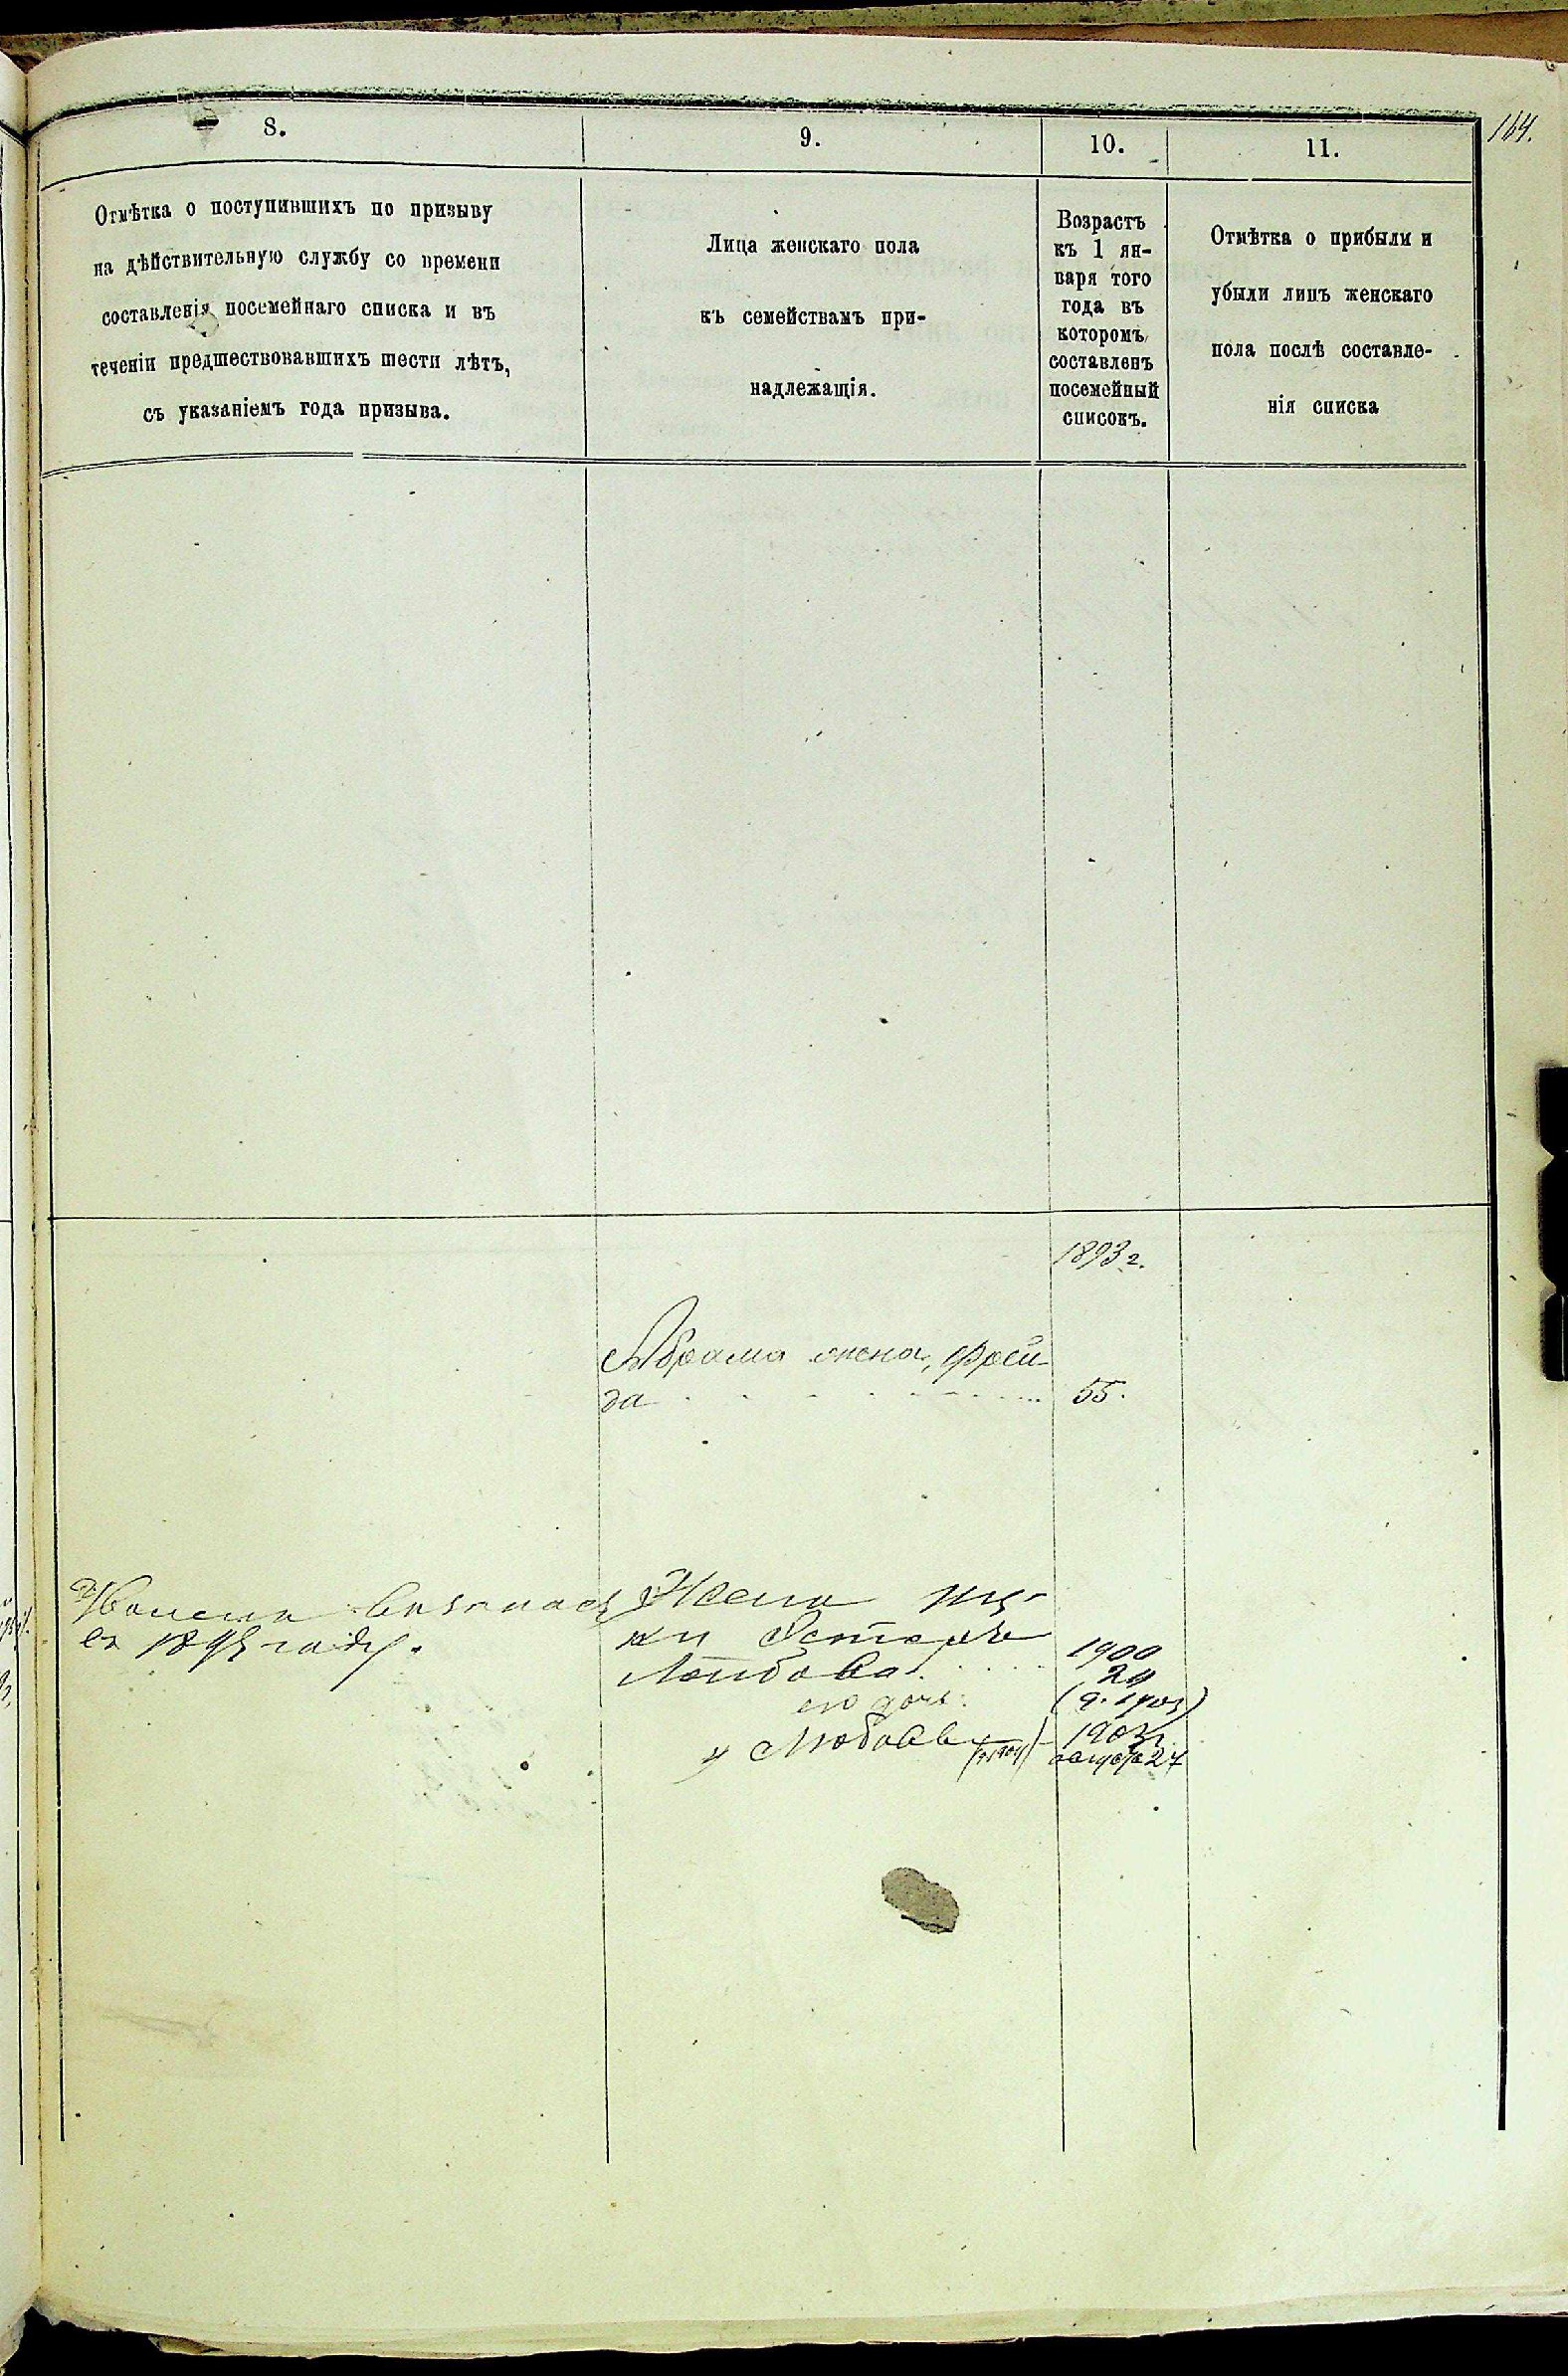 164.
8.
9.
10.
11.
Отмѣтка о поступившихъ по призыву
на дѣйствительную службу со времени
составленія посемейнаго списка и въ
теченіи предшествовавшихъ шести лѣтъ,
съ указаніемъ года призыва.
Лица женскаго пола
къ семействамъ при-
надлежащія.
Возрастъ
къ 1 ян-
варя того
года въ
которомъ
составленъ
посемейный
списокъ.
Отмѣтка о прибыли и
убыли лицъ женскаго
пола послѣ составле-
нія списка
1893 г.
Абрама жена, Фрей-
да 55.
въ году.
Жена Иц-
ки Эстеръ
Лейбова 1900
24
его дочь
Любовь 1903
августа 27